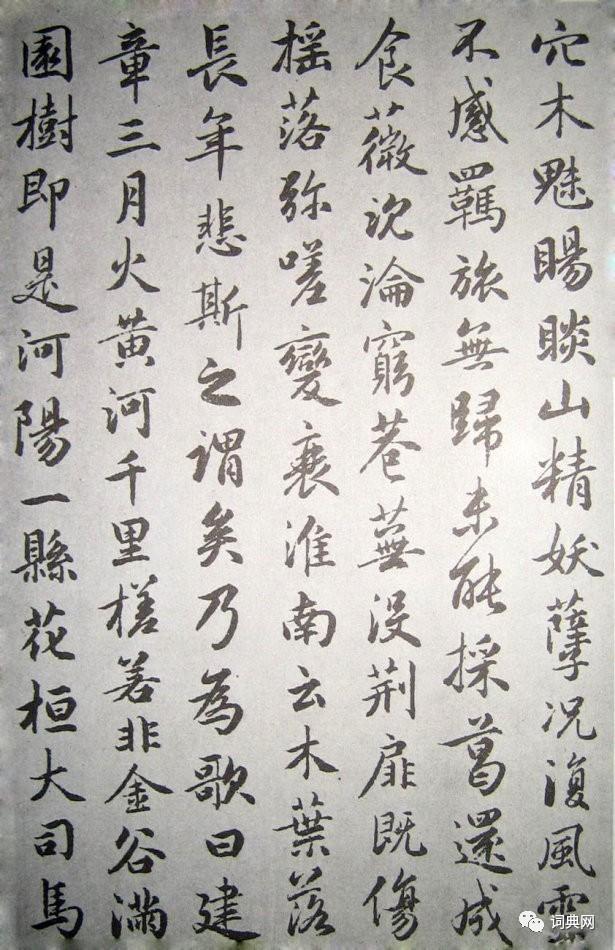 穴木魅睗睒山精妖孽况復風雲
不感羈旅無歸未能採葛還成
食薇沈淪窮巷蕪没荆扉既傷
摇落弥嗟變衰淮南云木葉落
長年悲斯之謂矣乃為歌曰建
章三月火黄河千里槎若非金谷滿
園樹即是河陽一縣花桓大司馬
词典网